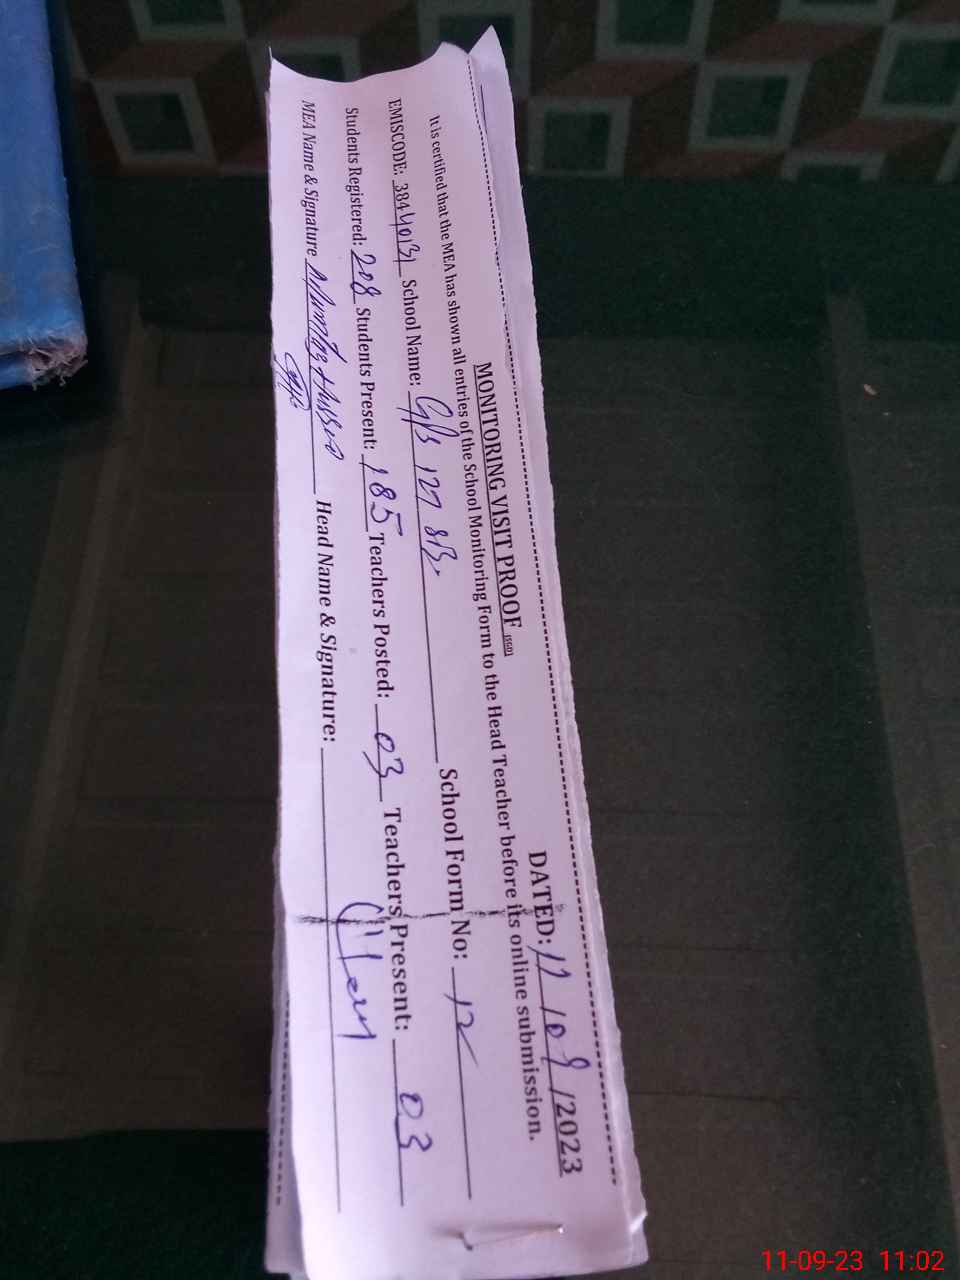 MONITORING VISIT PROOF
DATED: 11/09/2023
It is certified that the MEA has shown all entries of the School Monitoring Form to the Head Teacher before its online submission.
EMISCODE: 38440131 School Name: GPS 127 SB. School Form No: 12
Students Registered: 208 Students Present: 185 Teachers Posted: 03 Teachers Present: 03
MEA Name & Signature Mumtaz Hussain Head Name & Signature:
11-09-23 11:02